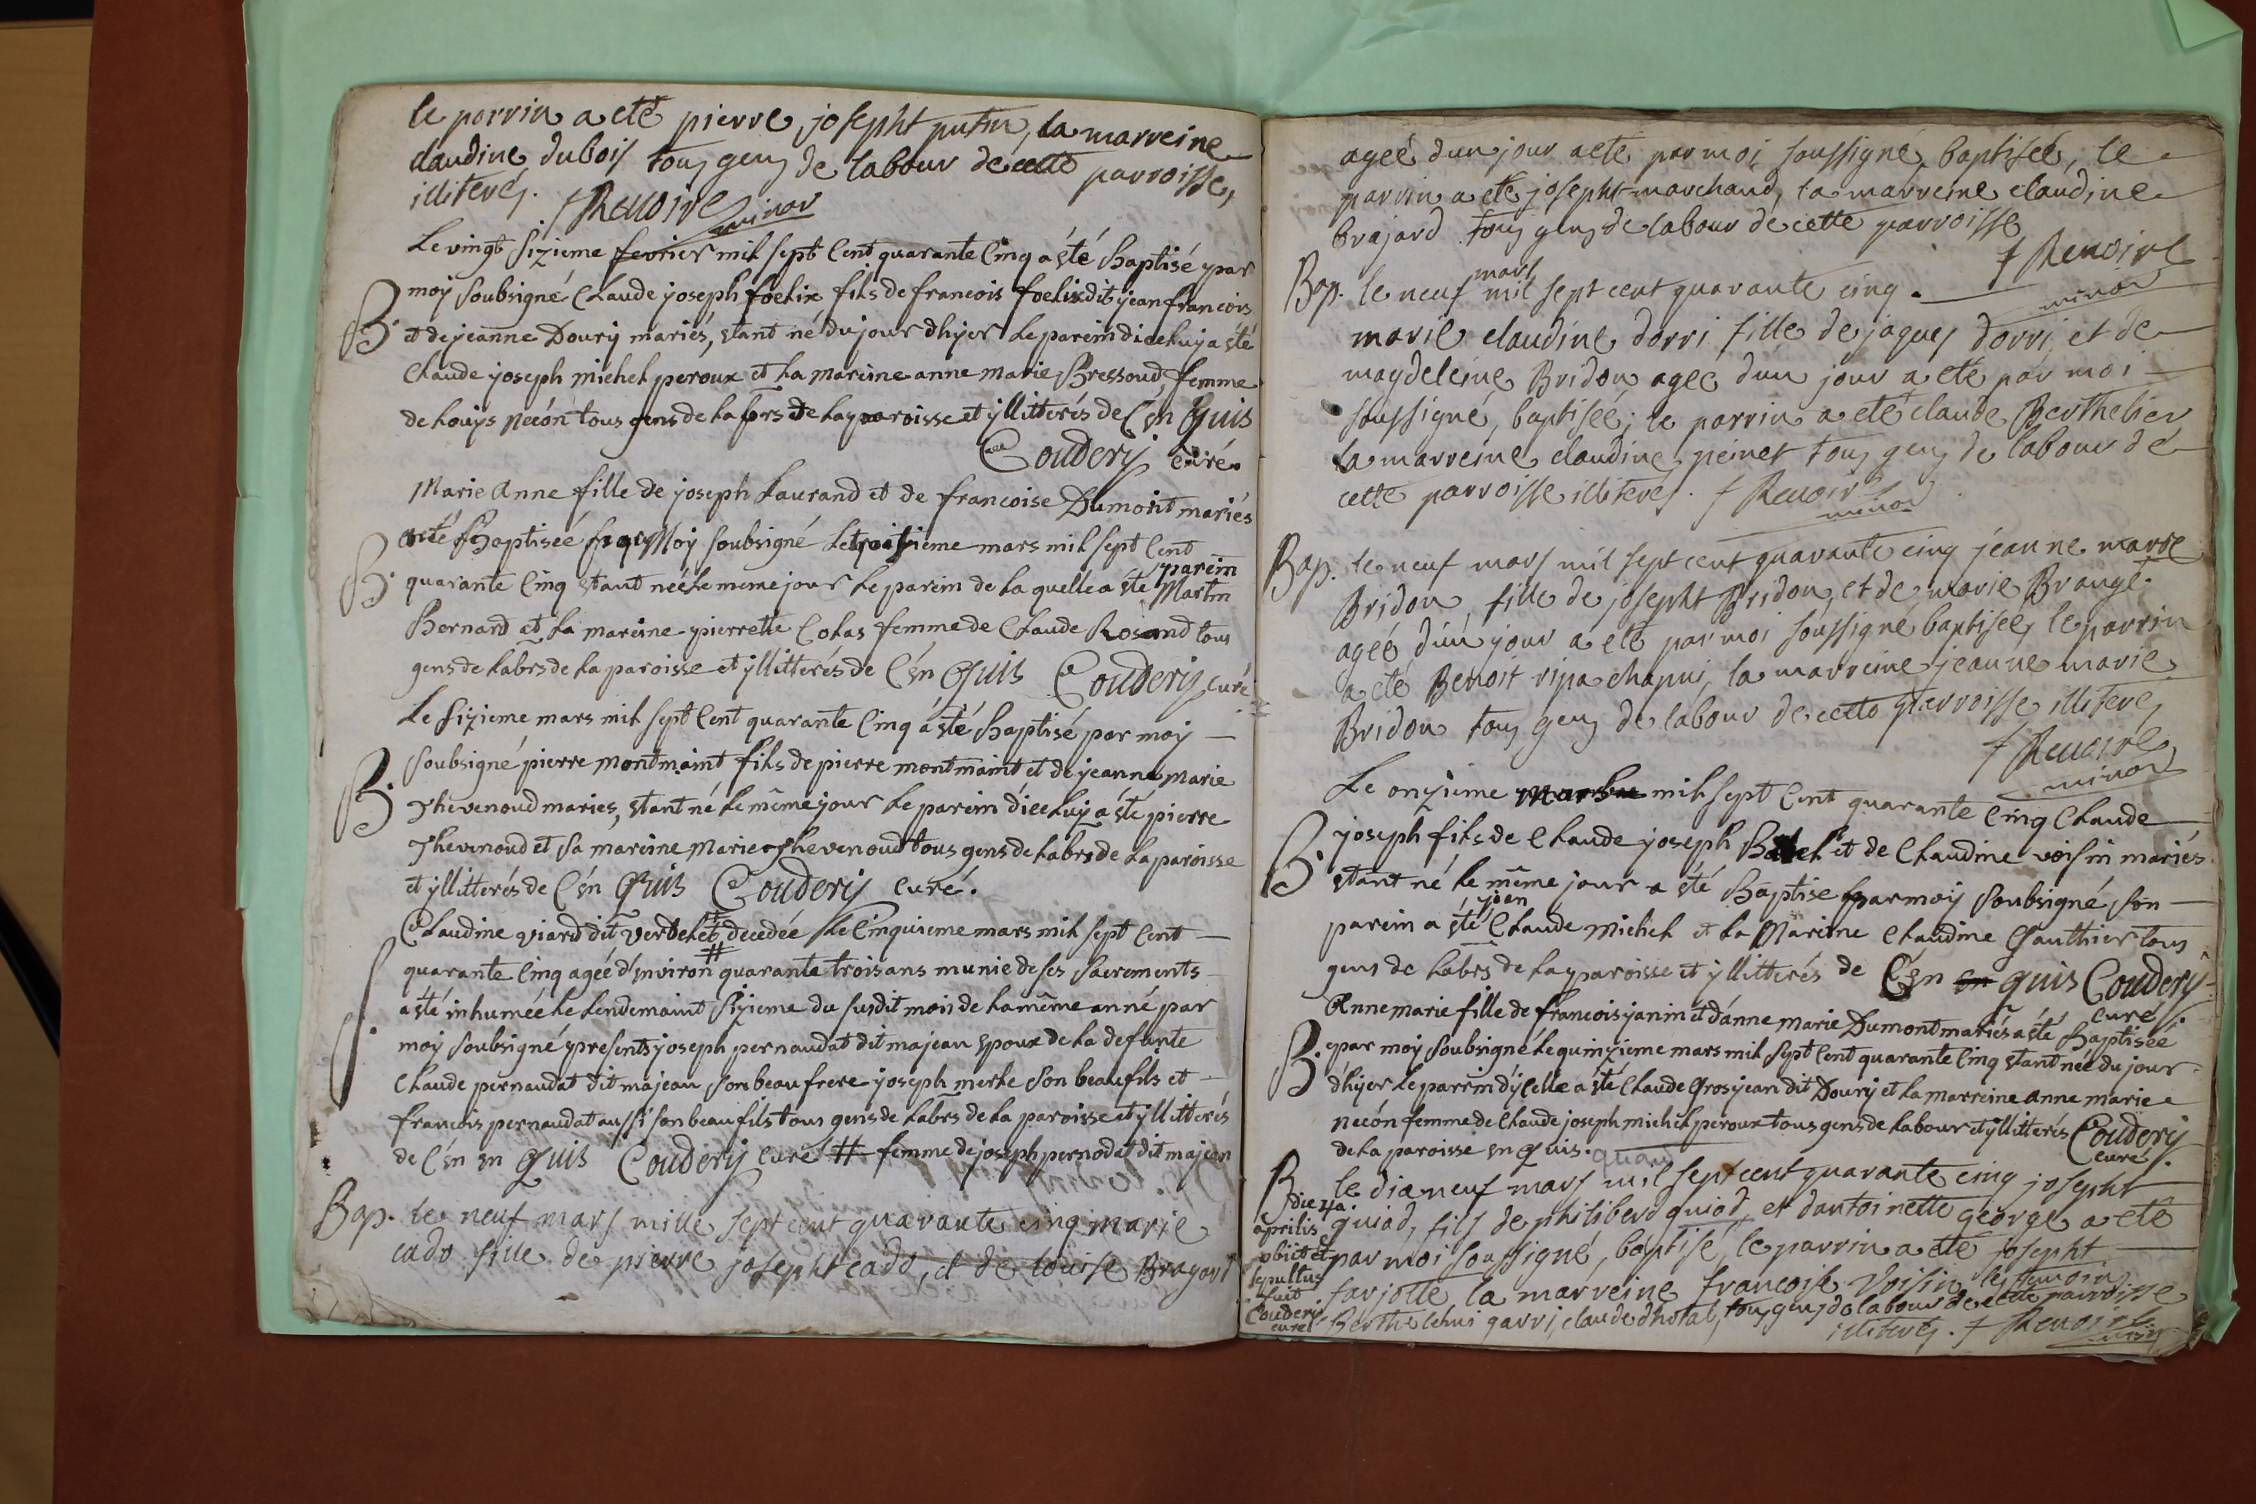 le parrin a eté pierre josepht putin, la marreine
claudine dubois tous gens de labour de cette parroisse,
illiterés. f Renoire
minor
Le vingt sizieme fevrier mil sept Cent quarante Cinq a été Baptisé par
B. moy soubsigné Claude joseph foelix fils de francois foelix dit jean francois
et de jeanne Doury mariés, étant né du jour d'hyer le parein d'iceluy a été
Claude joseph michel peroux et la mareine anne marie Bressoud, femme
de Louys necón tous gens de labrs de la paroisse et yllitterés de C'en Quis
Coudery curé.
Marie Anne fille de joseph Laurand et de francoise Dumont mariés
a été Baptisée par Moy soubsigné le troisieme mars mil sept Cent
B. quarante Cinq étant née le meme jour le parein de la quelle a été parein Martin
Bernard et la mareine pierrette Colas femme de Claude Rosand tous
gens de labrs de la paroisse et yllitterés de C'en Quis Coudery curé
Le sizieme mars mil sept Cent quarante Cinq a été Baptisé par moy
B. soubsigné pierre montmaint fils de pierre montmaint et de jeanne marie
Thevenoud maries, étant né le même jour le parein d'iceluy a été pierre
Thevenoud et sa mareine Marie Thevenoud tous gens de labrs de la paroisse
et yllitterés de C'en Quis Coudery curé.
Claudine viard dit verbelet decedée le Cinquieme mars mil sept Cent
S. quarante Cinq ageé d'environ # quarante trois ans munie de ses sacrements
a été inhumée le lendemaint sizieme du susdit mois de la même anné par
moy soubsigné presents joseph pernaudat dit majean epoux de la defunte
Claude pernaudat dit majean son beau frere joseph merle son beaufils et
francois pernaudat aussi son beau fils tous gens de labrs de la paroisse et yllitterés
de C'en en Quis Coudery curé # femme de joseph pernodat dit majean
Bap. le neuf mars mille sept cent quarante cinq marie
cado fille de pierre josepht cado, et de louise Bragard
ageé dun jour a eté par moi soussigné baptiseé, le
parrin a eté josepht marchand, la marreine claudine
brajard tous gens de labour de cette parroisse
f Renoire
minor
Bap. le neuf mars mil sept cent quarante cinq.
marie claudine dorri fille de jaques dorri et de
magdeleine Bridon ageé dun jour a eté par moi
soussigné, baptiseé; le parrin a eté claude Berthelier
la marreine claudine peinet tous gens de labour de
cette parroisse illiterés. f Renoire
minor
Bap. le neuf mars mil sept cent quarante cinq jeanne marie
Bridon, fille de josepht Bridon, et de marie Brangé
ageé d'un jour a eté par moi soussigné baptiseé, le parrin
a eté Benoit ripa chapui, la marreine jeanne marie
Bridon tous gens de labour de cette parroisse illiterés
f Renoire
minor
Le onzieme mars mil sept Cent quarante Cinq Claude
B. joseph fils de Claude joseph et de Claudine voisin mariés
étant né le même jour a été Baptise par moy soubsigné son
parein a été jean Claude Michel et la Mareine Claudine Gauthier tous
gens de labrs de la paroisse et yllitterés de C'en en quis Coudery
curé.
Anne marie fille de francois janin et d'anne marie Dumont mariés a été Baptisée
B. par moy soubsigné le quinzieme mars mil sept Cent quarante Cinq étant née du jour
d'hyer le parrin d'ycelle a été Claude Grosjean dit Doury et la marreine anne marie
necón femme de Claude joseph michel peroux tous gens de labour et yllitterés
de la paroisse en quis. Coudery
curé.
quard
B le dix neuf mars mil sept cent quarante cinq josepht
quiad, fils de philiberd quiad, et dantoinette george a eté
par moi soussigné, baptisé, le parrin a eté josepht
farjotte la marreine francoise voisin, les temoins
illiterés. f Renoire
minor
die 4a
aprilis
obiit et
sepultus
fuit
Coudery
curé